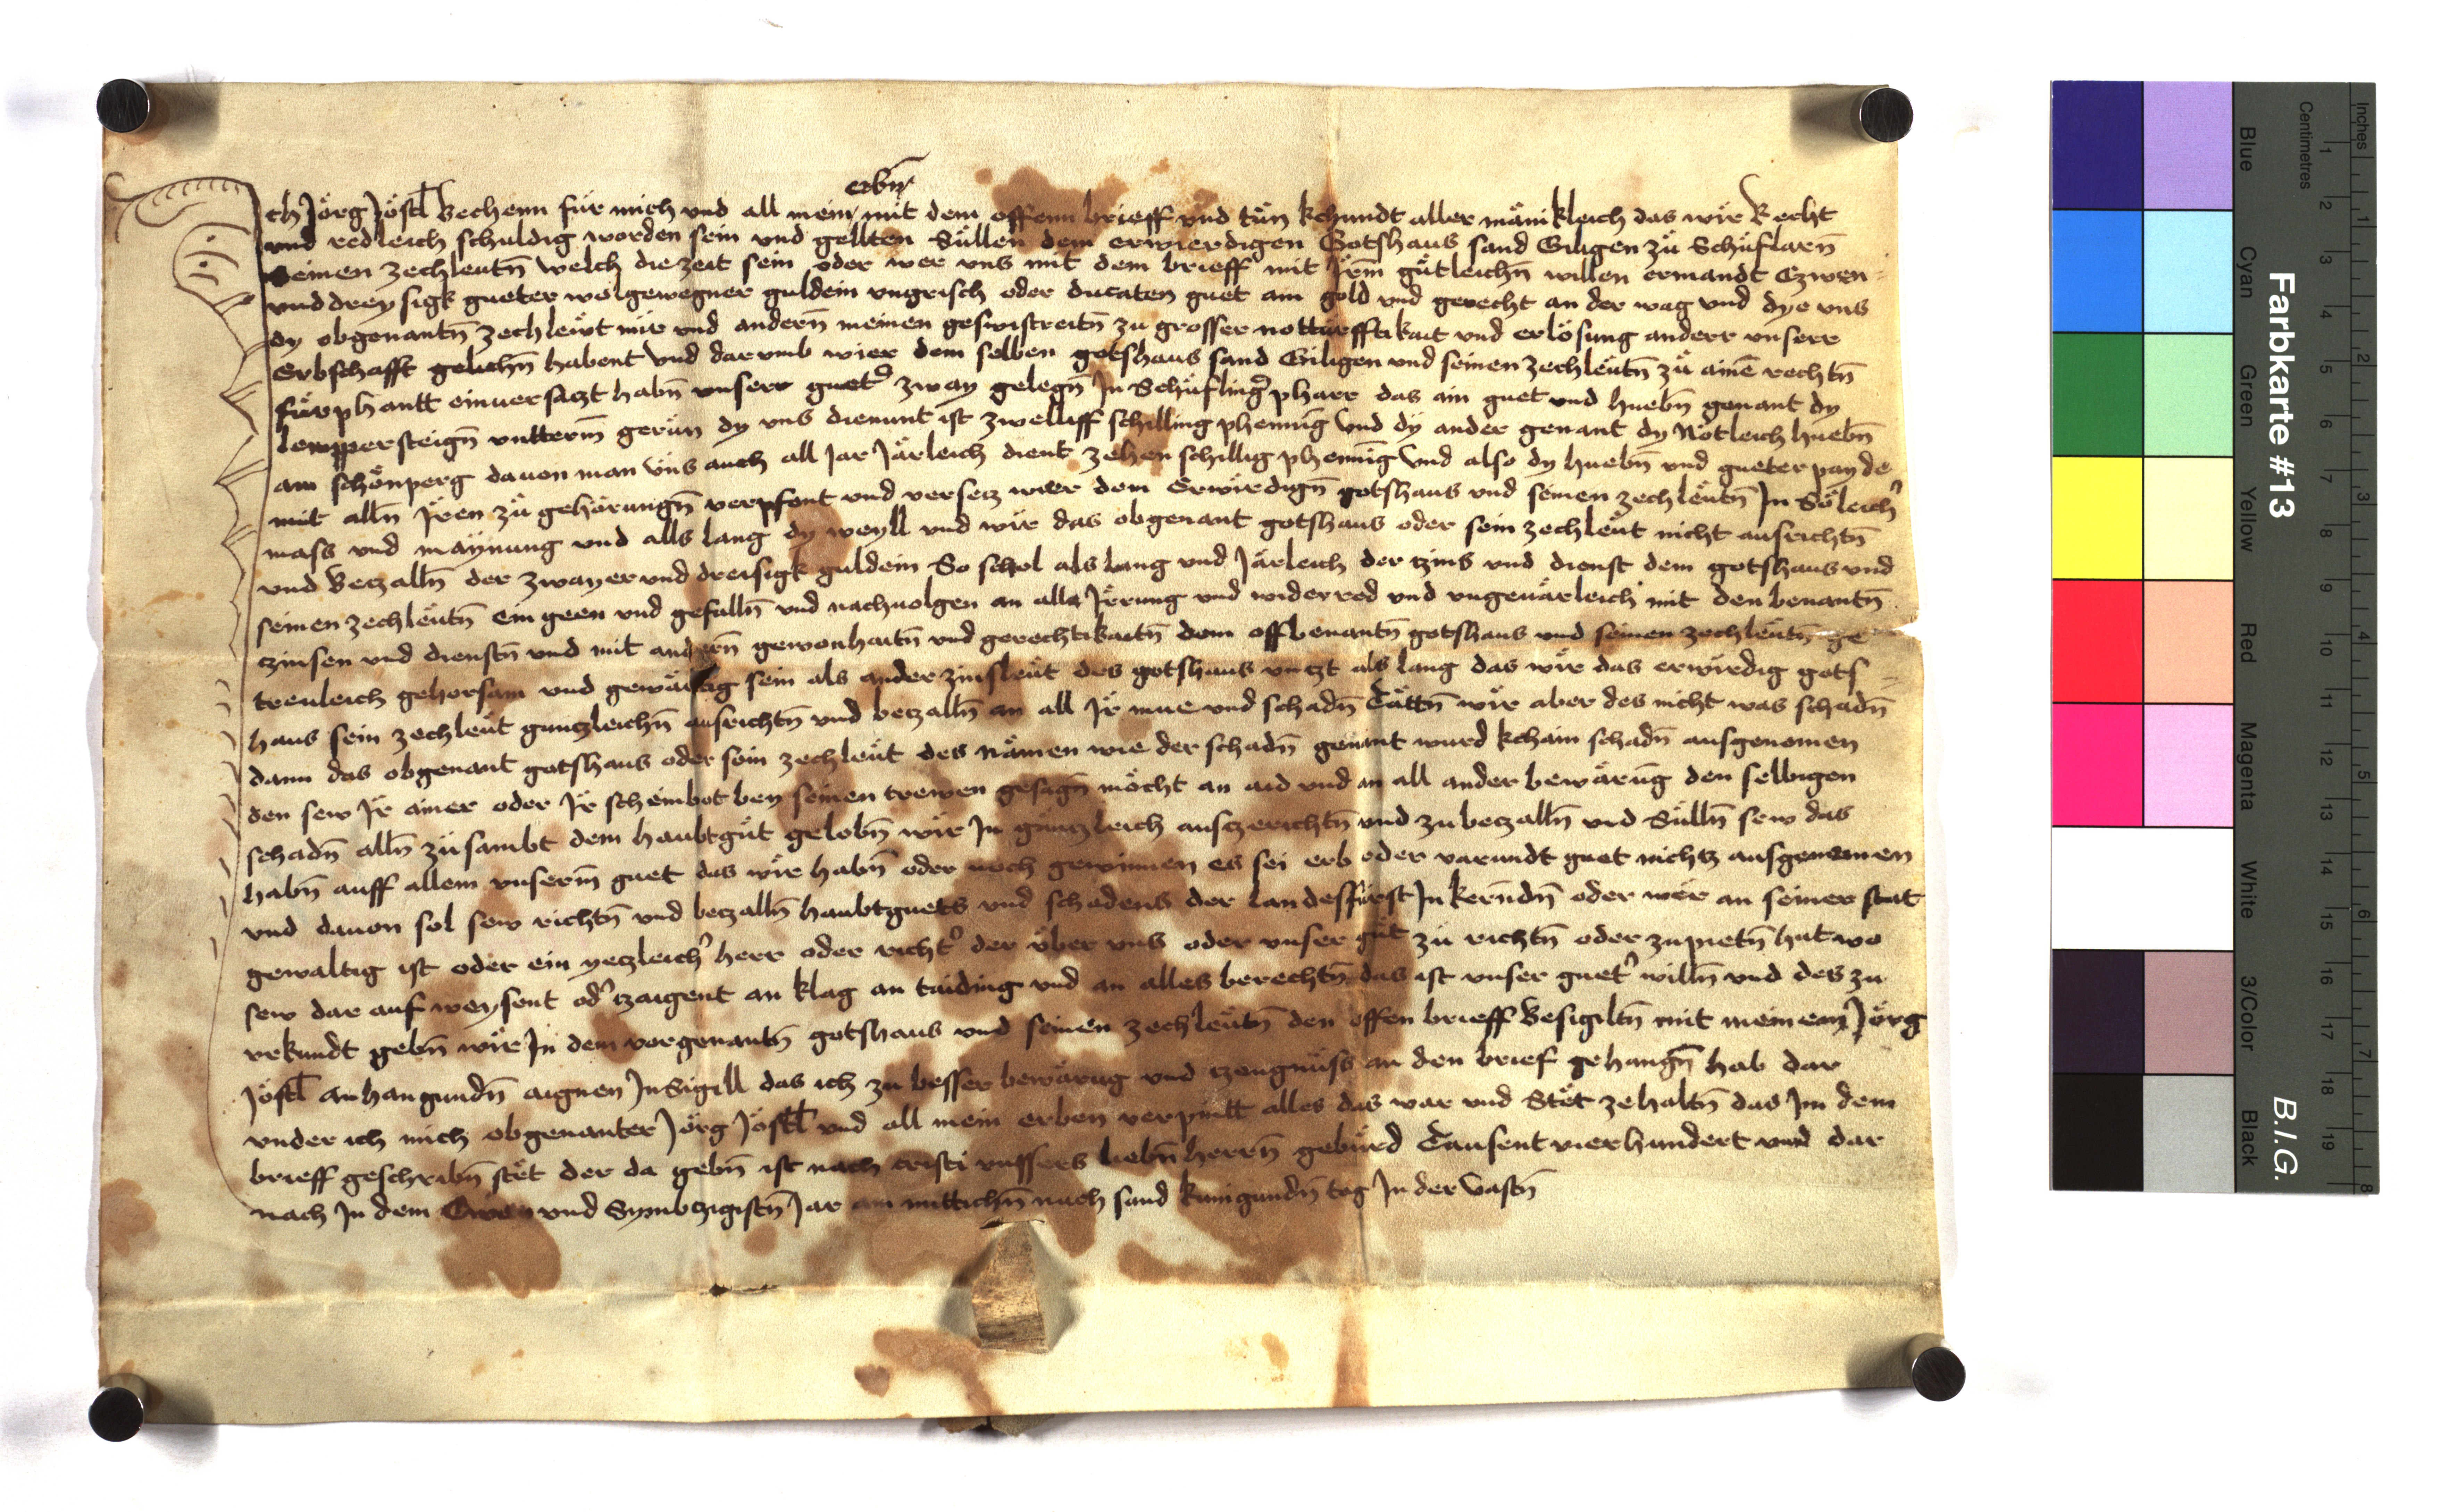 erbn̄
Ich Jörg Jöstl Bechenn für mich vnd all mein mit dem offenn brieff vnd tün kchundt aller mänikleich das wir Recht
vnd redleich schuldig worden sein vnd gellten Süllen dem erwierdigen Gotshaus sand Giligen zü Schüflarn̄
seinen zechleutn̄ welch die zeit sein oder wer vns mit dem brieff mit Irm̄ gütleichn̄ willen ermandt Czwen
vnd dreysigk gueter wolgewegner guldein vngrisch oder ducaten guet am gold vnd gerecht an der wag vnd dye vns
dy obgenantn̄ zechlewt mir vnd andern̄ meinen geswistreitn̄ zu grosser notturfftikait vnd erlösung anderr vnserr
Erbschafft gelichn̄ habent Vnd darumb wier dem selben gotshaus sand Giligen vnd seinen zechleutn̄ zü ainē rechtn̄
fürphantt einuersaczt habn̄ vnserr guetˀ zway gelegn̄ In Schüflingˀ pharr das ain guet vnd huebn̄ genant dy
lempersteign̄ vntterm̄ gerün dy vns dienunt ist zwelliff schilling phennīg Vnd dy ander genant dy Nötleich huebn̄
am schönperg dauon man vns auch all Jar Järleich dient zehen schillig phennīg Vnd also dy huebn̄ vnd gueter payde
mit alln̄ Iren zü gehörungn̄ verpfent vnd versetz wier dem Erwirdign̄ gotshaus vnd seinen zechleutn̄ In Söleichˀ
mass vnd maynung vnd alls lang dy weyll vnd wir das obgenant gotshaus oder sein zechleut nicht ausrichtn̄
vnd Betzalln̄ der zwayer vnd dreisigk guldein So schol als lang vnd Järleich der tzins vnd dienst dem gotshaus vnd
seinen zechleutn̄ ein geen vnd gefalln̄ vnd nachuolgen an alle Irrung vnd widerred vnd vngeuärleich mit den benantn̄
tzinsen vnd dienstn̄ vnd mit andern̄ gewonhaitn̄ vnd gerechtikaitn̄ dem offtbenantn̄ gotshaus vnd seinen zechleutn̄ ge
treuleich gehorsam vnd gewärtig sein als ander zinsleut des gotshaus vntzt als lang das wir das erwirdig gots
haus sein zechleut gantzleichn̄ ausrichtn̄ vnd betzalln̄ an all Ir mue vnd schadn̄ Tättn̄ wir aber des nicht was schadn̄
dann das obgenant gotshaus oder sein zechleut des Nämen wie der schadn̄ genant wurd kchain schadn̄ ausgenomen
den sew Ir ainer oder Ir scheinbot bey seinen trewen gesagn̄ möcht an aid vnd an all ander bewärūg den selbigen
schadn̄ alln̄ züsambt dem haubtgüt gelobn̄ wir In gäntzleich ausczerichtn̄ vnd zubetzalln̄ vnd Sülln̄ sew das
habn̄ auff allem vnserm̄ guet das wir habn̄ oder noch gewinnen es sei erb oder varundt guet nichtz ausgenomen
vnd dauon sol sew richtn̄ vnd betzalln̄ haubtguets vnd schadens der landesfürst In kernndn̄ oder wer an seiner stat
gewaltig ist oder ein yetzleichˀ herr oder richtˀ der über vns oder vnser güt zü richtn̄ oder zupietn̄ hat wo
sew dar auf weysent odˀ tzaigent an klag an taiding vnd an alles berechtn̄ das ist vnser guetˀ willn̄ vnd des zu
vrkundt gebn̄ wir In dem vorgenantn̄ gotshaus vnd seinen zechleutn̄ den offen brieff Besigiltn̄ mit meinem Jörg
Jöstl anhangundn̄ aignen InSigill das ich zu besser bewärug vnd tzeugnüss an den brief gehangn̄ hab dar
vnder ich mich obgenanter Jörg Jöstl vnd all mein erben verpintt alles das war vnd Stet zehaltn̄ das Im dem
brieff geschribn̄ stet der da gebn̄ ist nach cristi vnssers liebn̄ herrn̄ gebürd Tausent vierhundert vnd dar
nach In dem Czwen vnd Symbtzigistn̄ Jar am mittichn̄ nach sand kunigundn̄ tag In der Vastn̄
Inches
Centimetres
1 2 3 4 5 6 7 8 9 10 11 12 13 14 15 16 17 18 19
1 2 3 4 5 6 7 8
Farbkarte #13
B.I.G.
Blue
Cyan
Green
Yellow
Red
Magenta
White
3/Color
Black